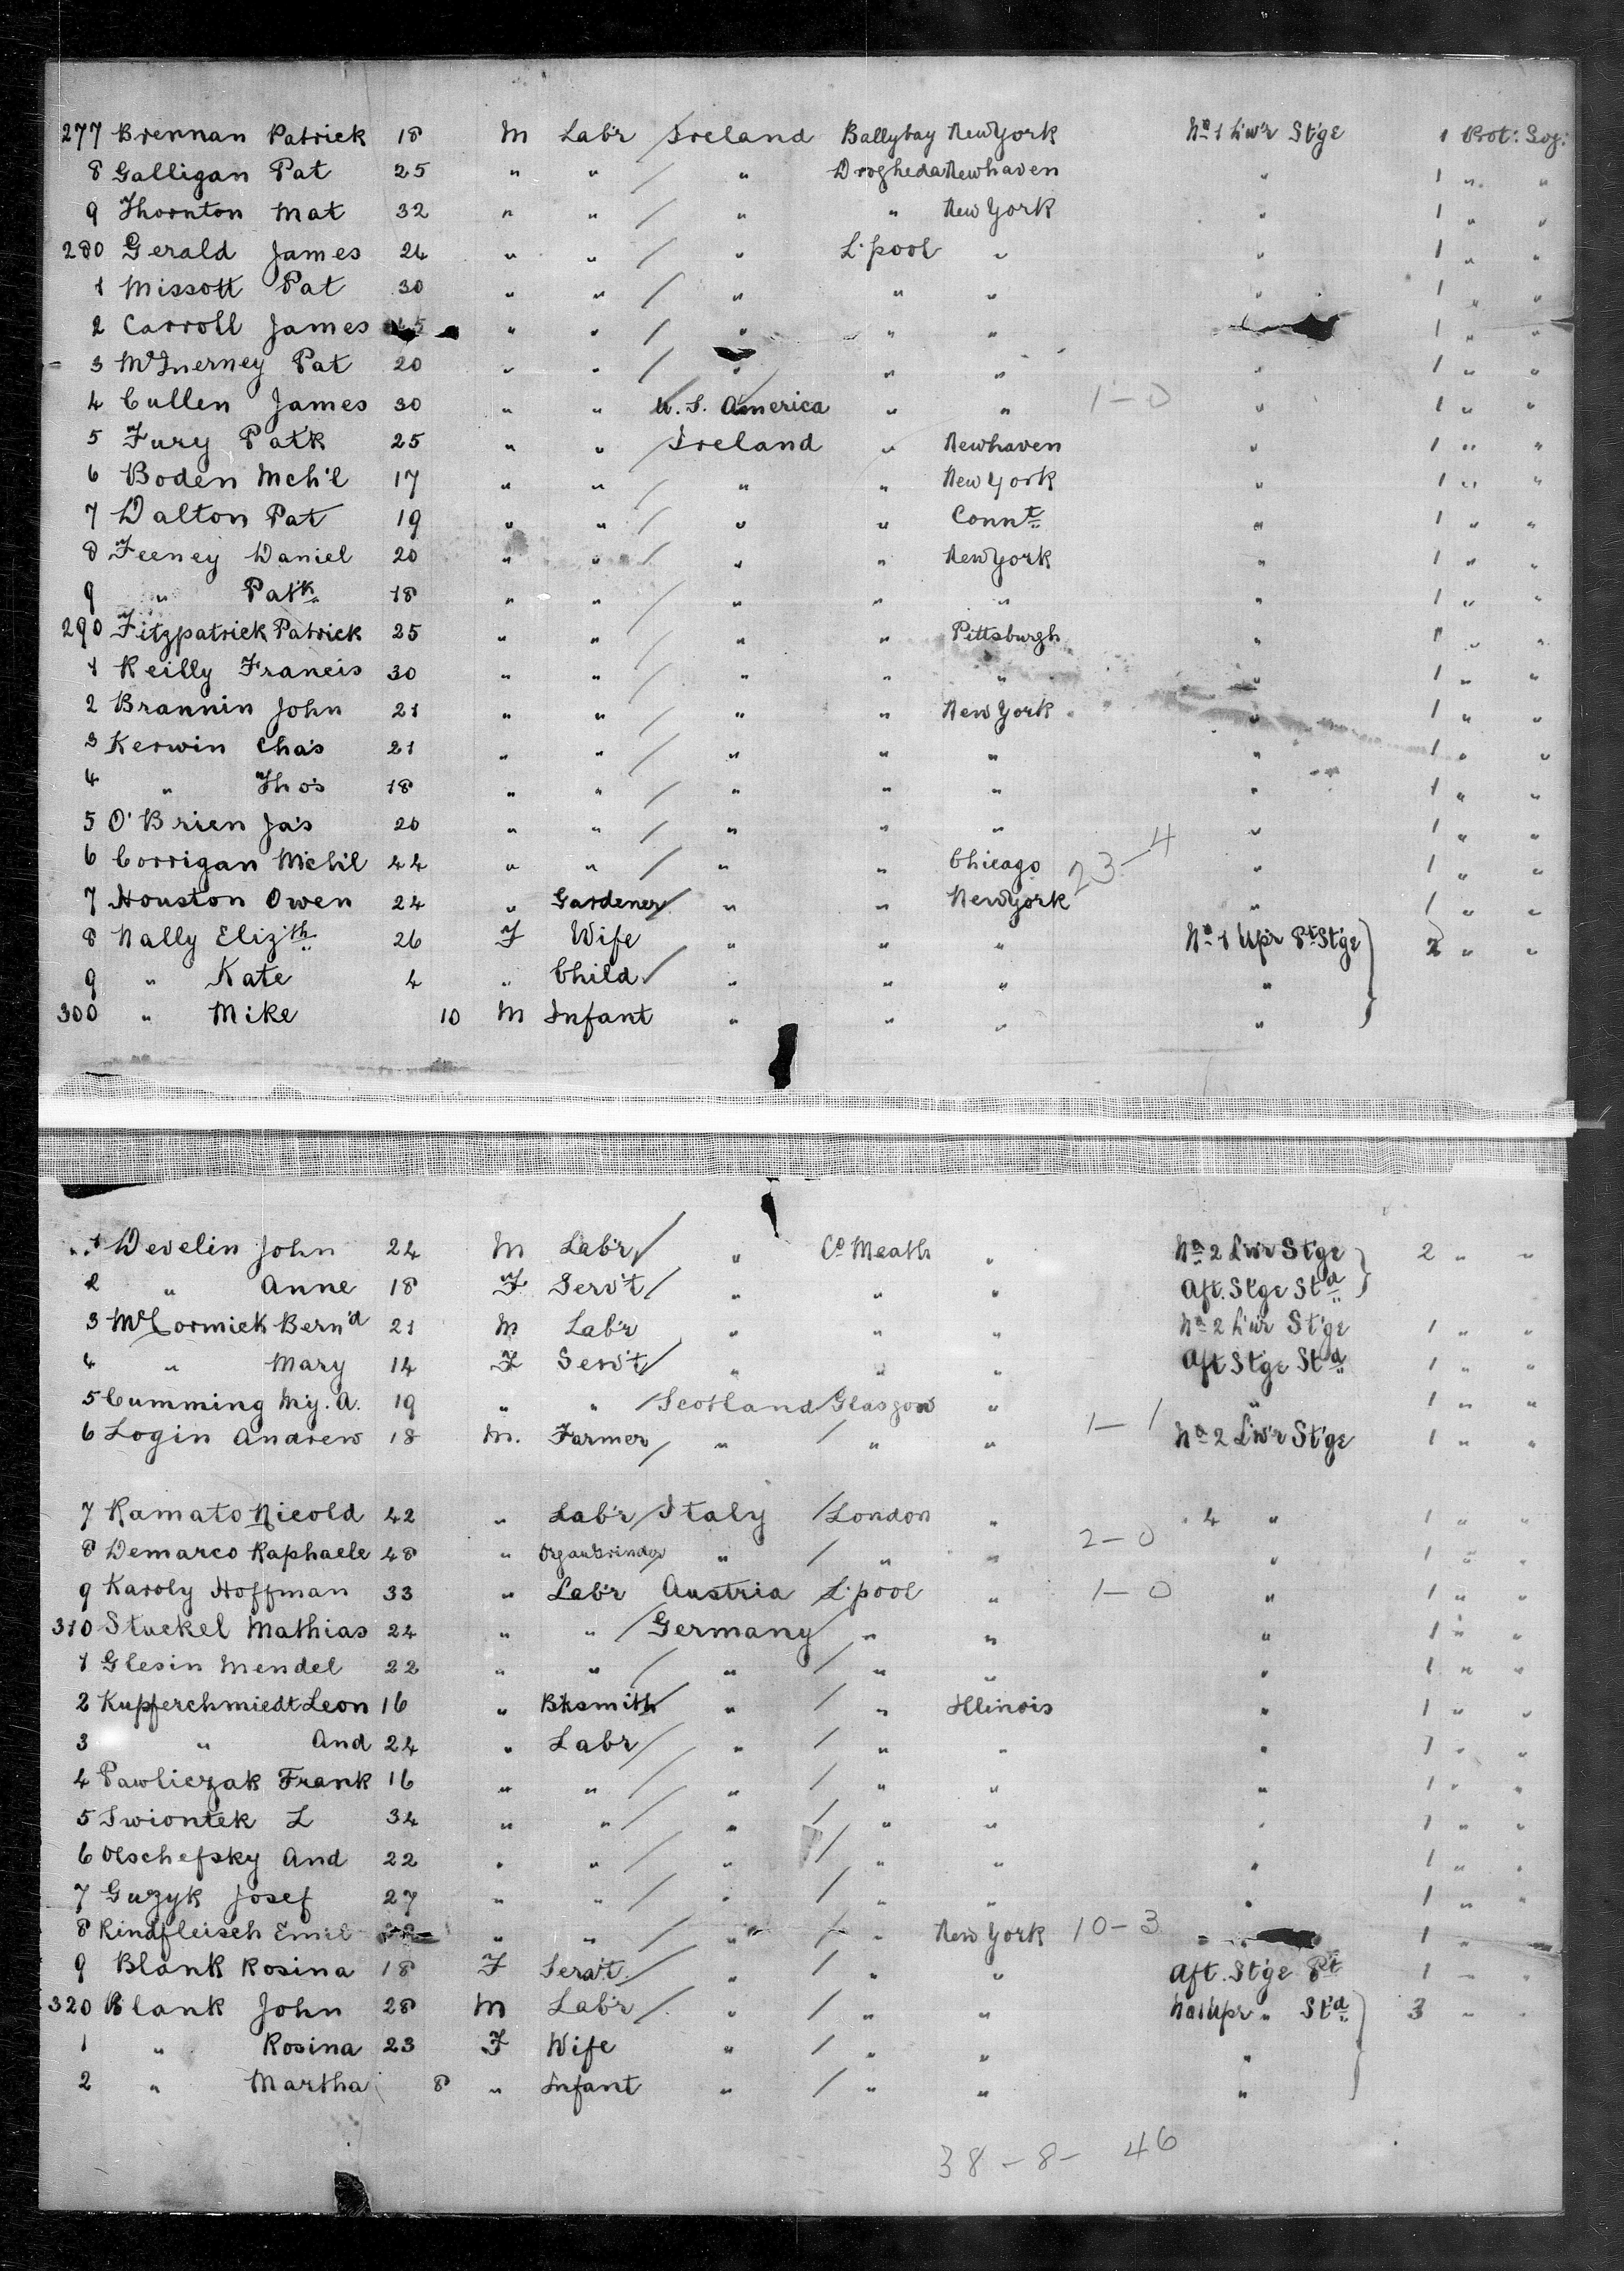 277 Brennan Patrick 18 M Lab'r Ireland Ballybay New York No 1 Lw'r St'ge 1 Prot: Soj:
8 Galligan Pat 25 " " " Drogheda Newhaven " 1 " "
9 Thornton Mat 32 " " " " New York " 1 " "
280 Gerald James 24 " " " L'pool " " 1 " "
1 Missott Pat 30 " " " " " " 1 " "
2 Carroll James " " " " " 1 " "
3 McInerney Pat 20 " " " " " " 1 " "
4 Cullen James 30 " " U.S. America " " 1-0 " 1 " "
5 Fury Patk 25 " " Ireland " Newhaven " 1 " "
6 Boden Mch'l 17 " " " " New York " 1 " "
7 Dalton Pat 19 " " " " Connt " 1 " "
8 Feeney Daniel 20 " " " " New York " 1 " "
9 " Patk 18 " " " " " " 1 " "
290 Fitzpatrick Patrick 25 " " " " Pittsburgh " 1 " "
1 Reilly Francis 30 " " " " " " 1 " "
2 Brannin John 21 " " " " New York " 1 " "
3 Kerwin Cha's 21 " " " " " " 1 " "
4 " Tho's 18 " " " " " " 1 " "
5 O'Brien Ja's 20 " " " " " " 1 " "
6 Corrigan Mich'l 44 " " " " Chicago 23-4 " 1 " "
7 Houston Owen 24 " Gardener " " New York " 1 " "
8 Nally Eliz'th 26 F Wife " " " No 1 Up'r Pt St'ge 2 " "
9 " Kate 4 " Child " " " "
300 " Mike 10 M Infant " " " "
1 Develin John 24 M Lab'r " Co Meath " No 2 Lw'r St'ge 2 " "
2 " Anne 18 F Serv't " " " Aft. St'ge Std
3 McCormick Bern'd 21 M Lab'r " " " No 2 Lw'r St'ge 1 " "
4 " Mary 14 F Serv't " " " Aft St'ge Std 1 " "
5 Cumming My. A. 19 " " Scotland Glasgow " " 1 " "
6 Login Andrew 18 M. Farmer " " " 1-1 No 2 Lw'r St'ge 1 " "
7 Ramato Nicold 42 " Lab'r Italy London " " 4 " 1 " "
8 Demarco Raphaele 48 " Organ Grinder " " " 2-0 " 1 " "
9 Karoly Hoffman 33 " Lab'r Austria L'pool " 1-0 " 1 " "
310 Stuckel Mathias 24 " " Germany " " " 1 " "
1 Glesin Mendel 22 " " " " " " 1 " "
2 Kupferchmiedt Leon 16 " Bksmith " " Illinois " 1 " "
3 " And 24 " Lab'r " " " " 1 " "
4 Pawliczak Frank 16 " " " " " " 1 " "
5 Swiontek L 34 " " " " " " 1 " "
6 Olschefsky And 22 " " " " " " 1 " "
7 Guzyk Josef 27 " " " " " " 1 " "
8 Rindfleisch Emil " " " " New York 10-3 " 1 " "
9 Blank Rosina 18 F Serv't " " " Aft. St'ge Pt 1 " "
320 Blank John 28 M Lab'r " " " No 1 Upr " Std 3 " "
1 " Rosina 23 F Wife " " " "
2 " Martha 8 " Infant " " " "
38-8-46